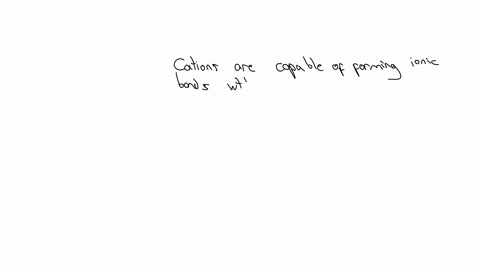 Cations are capable of forming ionic
bonds wt'